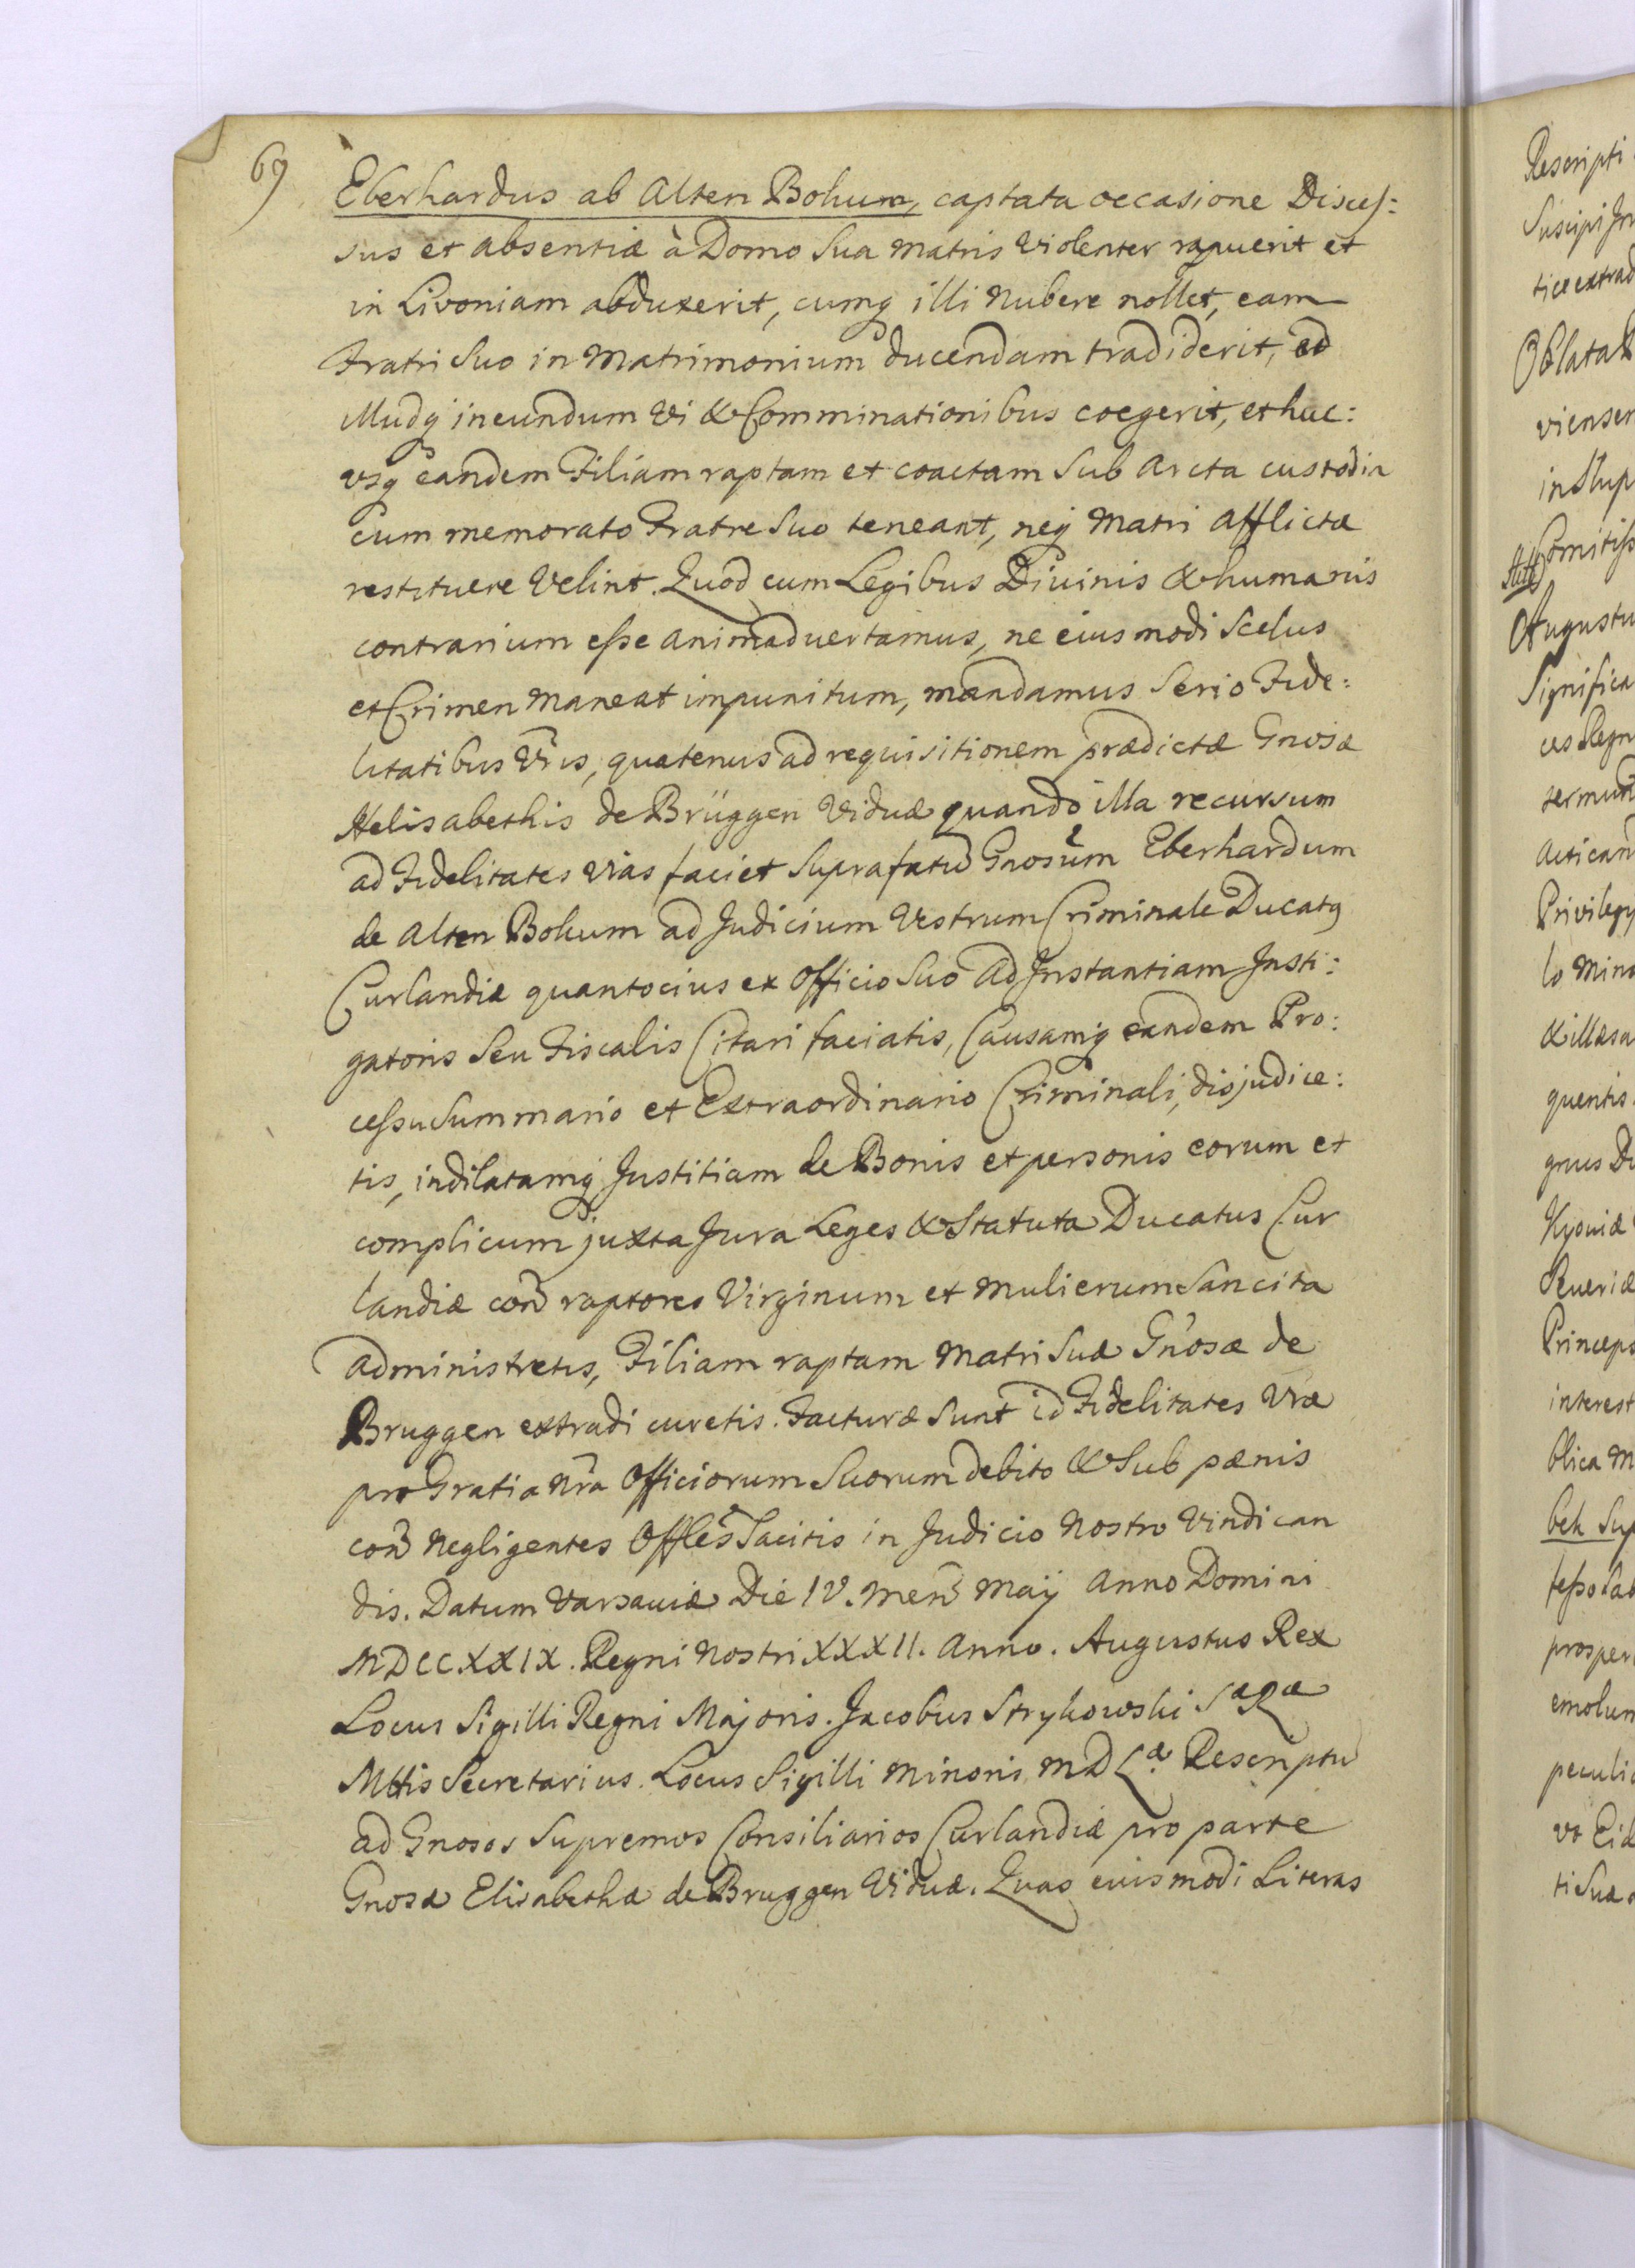 69
Eberhardus ab Alten Bohum, captata occasione Disces:
sus et absentiæ à Domo Sua Matris Violenter rapuerit et
in Livoniam abduxerit, cumq illi Nubere nollet, eam
Fratri Suo in Matrimonium ducendam tradiderit, ad
illudq ineundum Vi & Comminationibus coegerit, et huc:
vsq eandem Filiam raptam et coactam Sub Arcta custodia
cum memorato Fratre Suo teneant, neq Matri Afflictæ
restituere Velint. Quod cum Legibus Diuinis & humanis
contrarium esse animaduertamus, ne eiusmodi Scelus
et Crimen Maneat impunitum, mandamus Serio Fide:
litatibus Vris, quatenus ad requisitionem prædictæ Gnosæ
Helisabethis de Brüggen Viduæ quando illa recursum
ad Fidelitates Vras faciet Suprafatu Gnosum Eberhardum
de Alten Bohum ad Judicium Vestrum Criminale Ducatq
Curlandiæ quantocius ex Officio Suo Ad Instantiam Insti:
gatoris Seu Fiscalis Citari faciatis, Causamq eandem Pro:
cessu Summario et Extraordinario Criminali, disjudice:
tis, indilatamq Justitiam de Bonis et personis eorum et
complicum juxta Jura Leges & Statuta Ducatus Cur
landiæ con raptores Virginum et Mulierum Sancita
administretis, Filiam raptam Matri Suæ Gnosæ de
Bruggen extradi curetis. Facturæ Sunt id Fidelitates Vræ
pro Gratia Nra Officiorum Suorum debito & Sub pænis
con Negligentes Offles Tacitis in Judicio Nostro Vindican
dis. Datum Varsauiæ Die IV. Men Maÿ Anno Domini
MDCCXXIX. Regni Nostri XXXII. Anno. Augustus Rex
Locus Sigilli Regni Majoris. Jacobus Strykowski Sæ Ræ
Mttis Secretarius. Locus Sigilli Minoris MDLæ. Rescriptu
ad Gnosos Supremos Consiliarios Curlandiæ pro parte
Gnosæ Elisabethæ de Bruggen Viduæ. Quas euismodi Literas
Rescripti
Suscipi
Oblata
viensem
Augustu
Significa
Privilegy
lo Mino
quentis
Kyouiæ
Princeps
interest
blica M
beh Sup
prosper
emolum
peculia